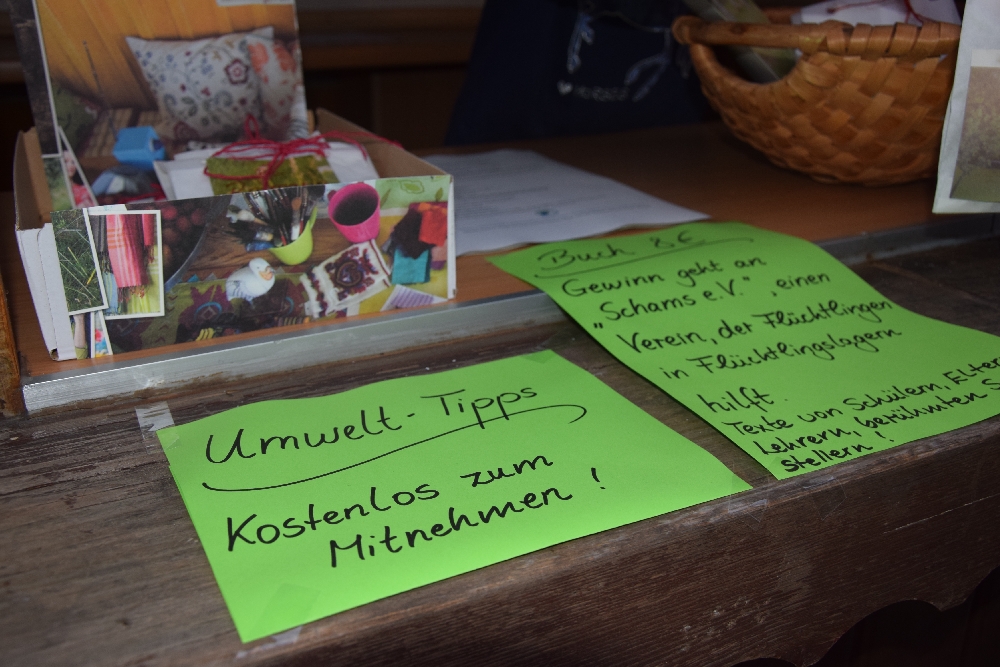 Umwelt-Tipps
Kostenlos zum
Mitnehmen!
Buch 8€
Gewinn geht an
„Schams e.V.", einen
Verein, der Flüchtlingen
in Flüchtlingslagern
hilft.
Texte von Schülern, Elter
Lehrern, berühmten S
stellern!